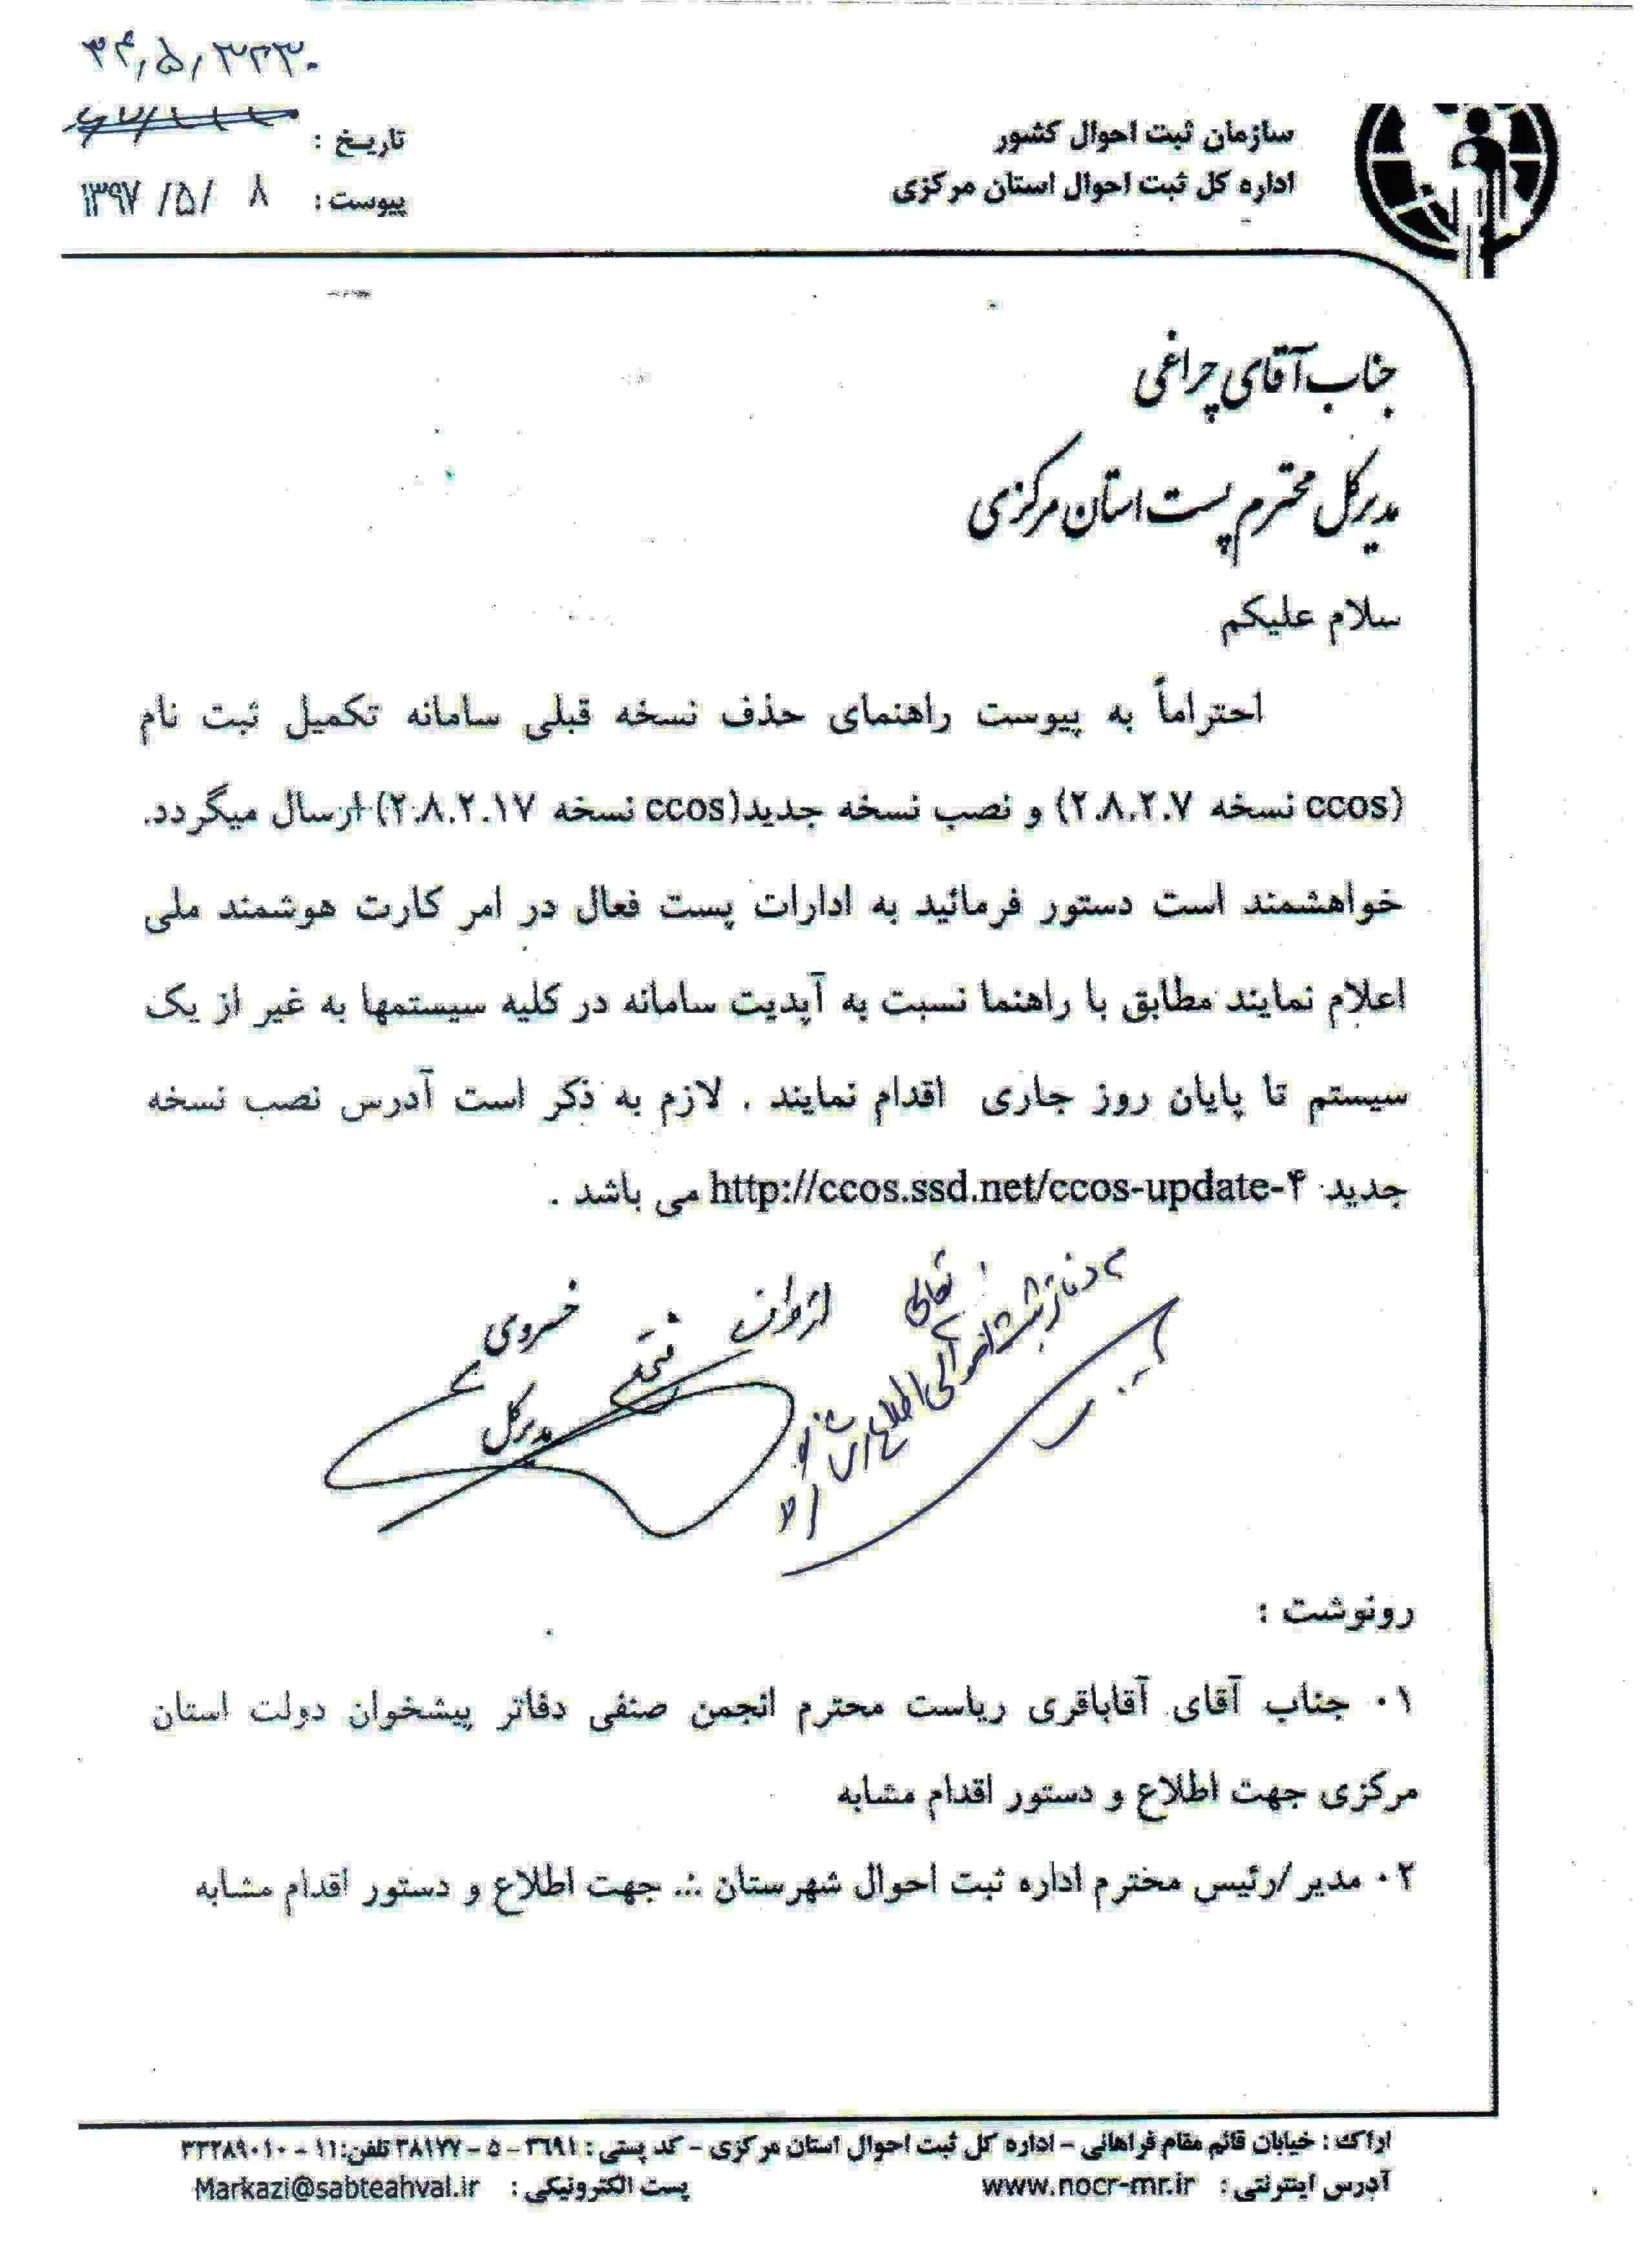 ۳۴٫۵٫۳۳۳۰
سازمان ثبت احوال کشور
اداره کل ثبت احوال استان مرکزی
تاریخ :
پیوست : ۱۳۹۷ /۵/ ۸
جناب آقای چراغی
مدیرکل محترم پست استان مرکزی
سلام علیکم
احتراماً به پیوست راهنمای حذف نسخه قبلی سامانه تکمیل ثبت نام
(ccos نسخه ۲.۸.۲.۷) و نصب نسخه جدید(ccos نسخه ۲.۸.۲.۱۷) ارسال میگردد.
خواهشمند است دستور فرمائید به ادارات پست فعال در امر کارت هوشمند ملی
اعلام نمایند مطابق با راهنما نسبت به آپدیت سامانه در کلیه سیستمها به غیر از یک
سیستم تا پایان روز جاری اقدام نمایند . لازم به ذکر است آدرس نصب نسخه
جدید http://ccos.ssd.net/ccos-update-۴ می باشد .
خسروی
مدیرکل
رونوشت :
۰۱ جناب آقای آقاباقری ریاست محترم انجمن صنفی دفاتر پیشخوان دولت استان
مرکزی جهت اطلاع و دستور اقدام مشابه
۰۲ مدیر/رئیس محترم اداره ثبت احوال شهرستان ... جهت اطلاع و دستور اقدام مشابه
اراک : خیابان قائم مقام فراهانی – اداره کل ثبت احوال استان مرکزی – کد پستی : ۳۶۹۱ – ۵ – ۳۸۱۷۷ تلفن:۱۱ – ۳۳۲۸۹۰۱۰
آدرس اینترنتی : www.nocr-mr.ir پست الکترونیکی : Markazi@sabteahval.ir